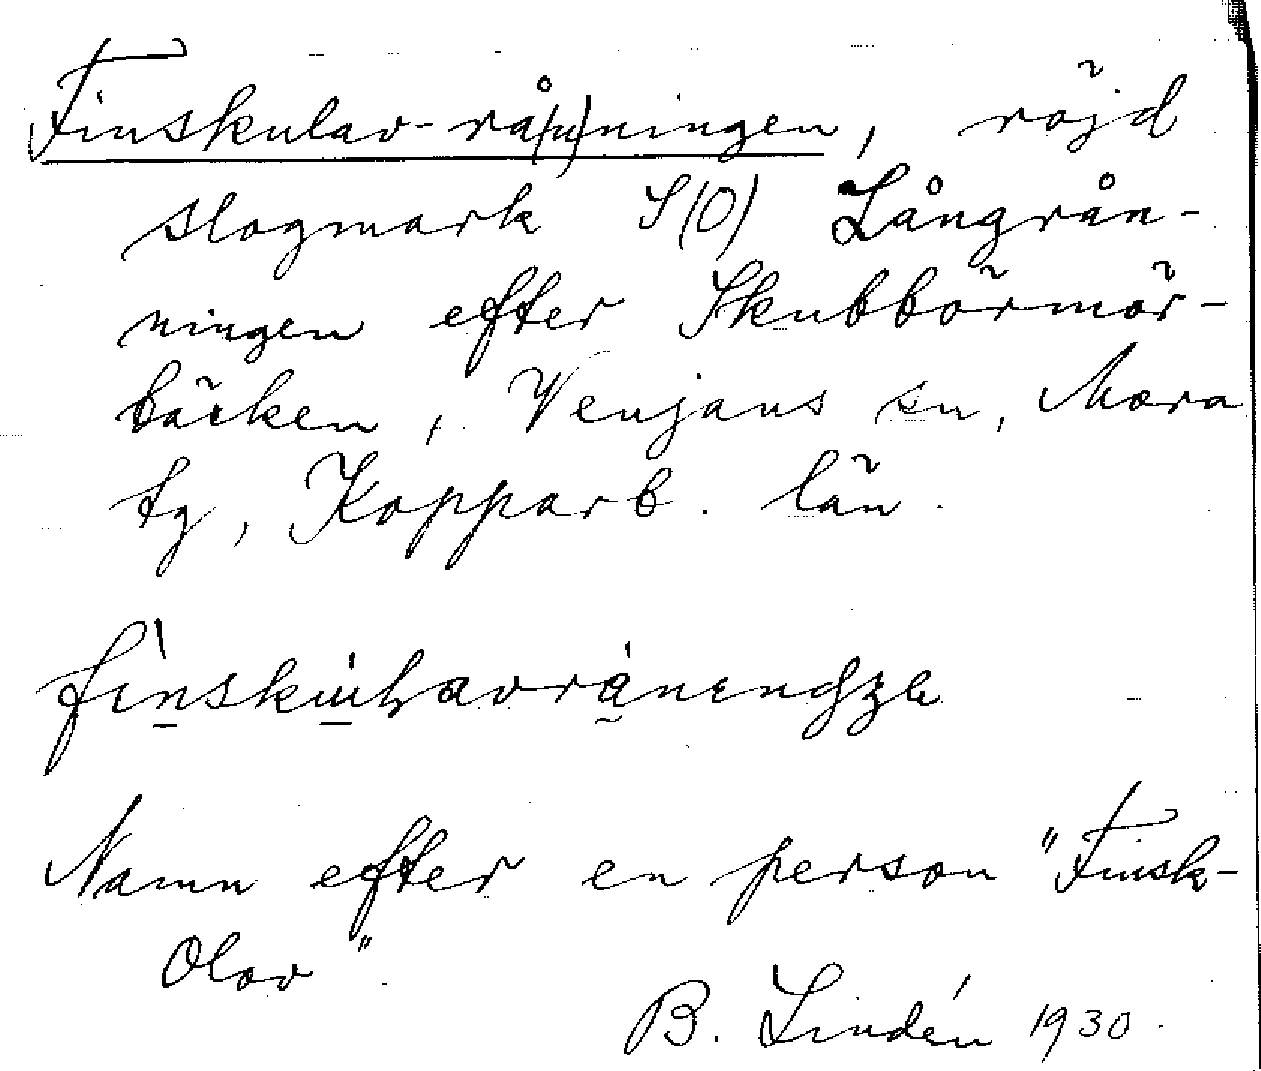 Finskulav-rå(n)ningen, röjd
slogmark S(O) Långrån-
ningen efter Skubbörmör-
bäcken, Venjans sn, Mora
tg, Kopparb. län.
Namn efter en person "Finsk-
Olov".
B. Lindén 1930.